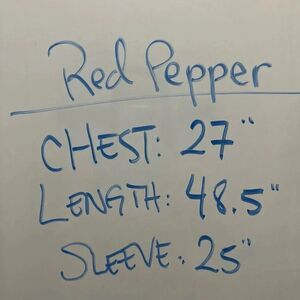 Red Pepper
CHEST: 27"
LENGTH: 48.5"
SLEEVE: 25"